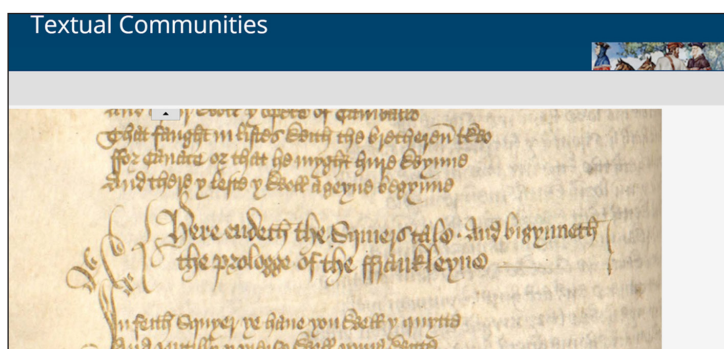 Textual Communities
And I wole y speke of Cambalo
That faught in listes with the bretheren two
ffor Canace or that he myght hire wynne
And there y lefte y woll ageyne begynne
Here endeth the Squiers tale. And bigynneth
the prologge of the ffrankleyne
In feith Squyer ye haue you well y quytte